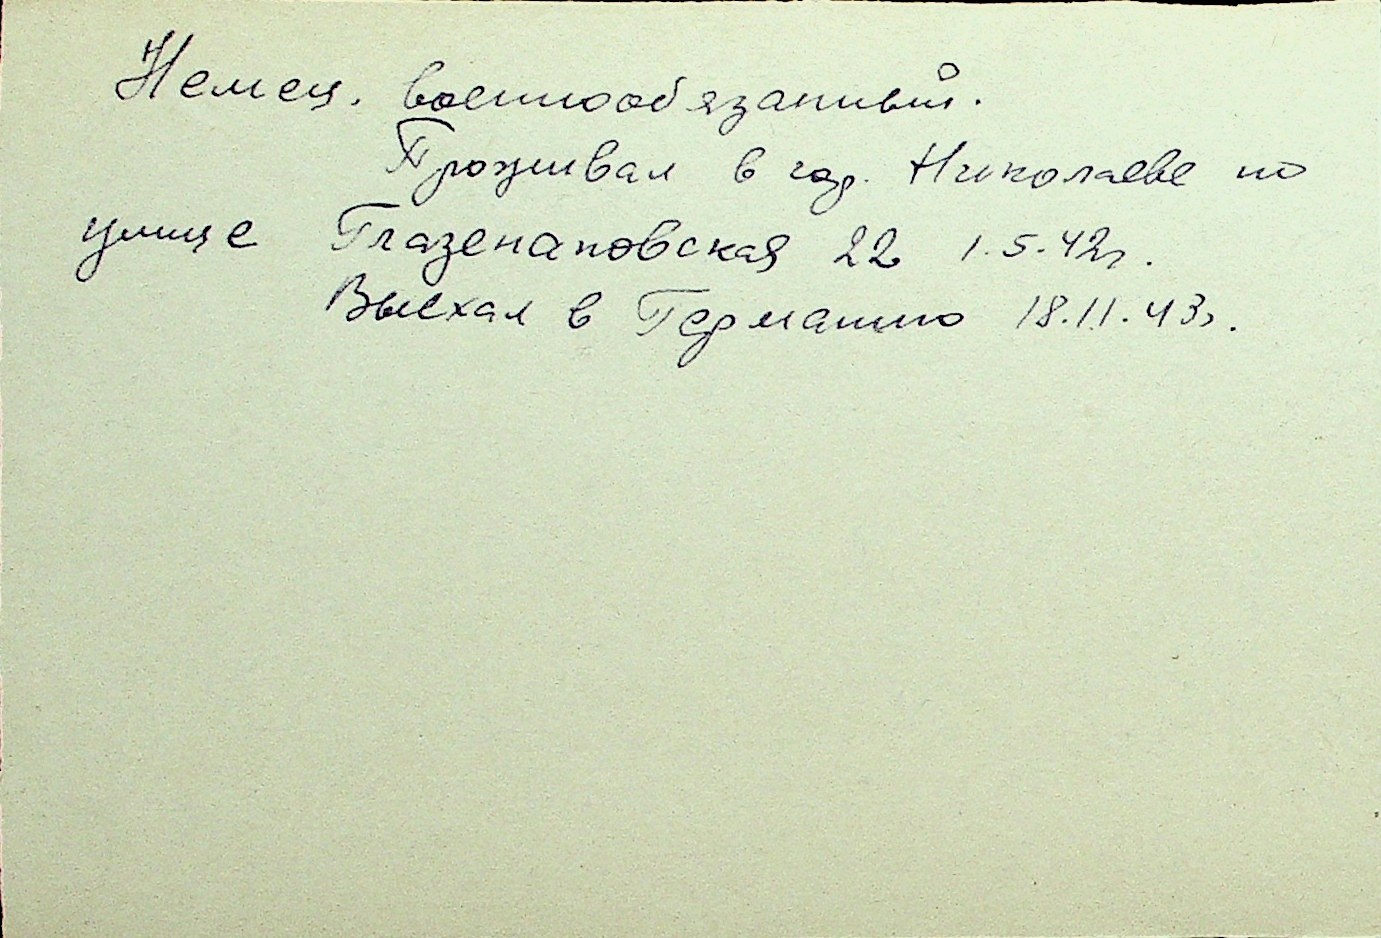 Немец. военнообязанный.
Проживал в гор. Николаеве по
улице Глазенаповская 22 1.5.42г.
Выехал в Германию 18.11.43г.